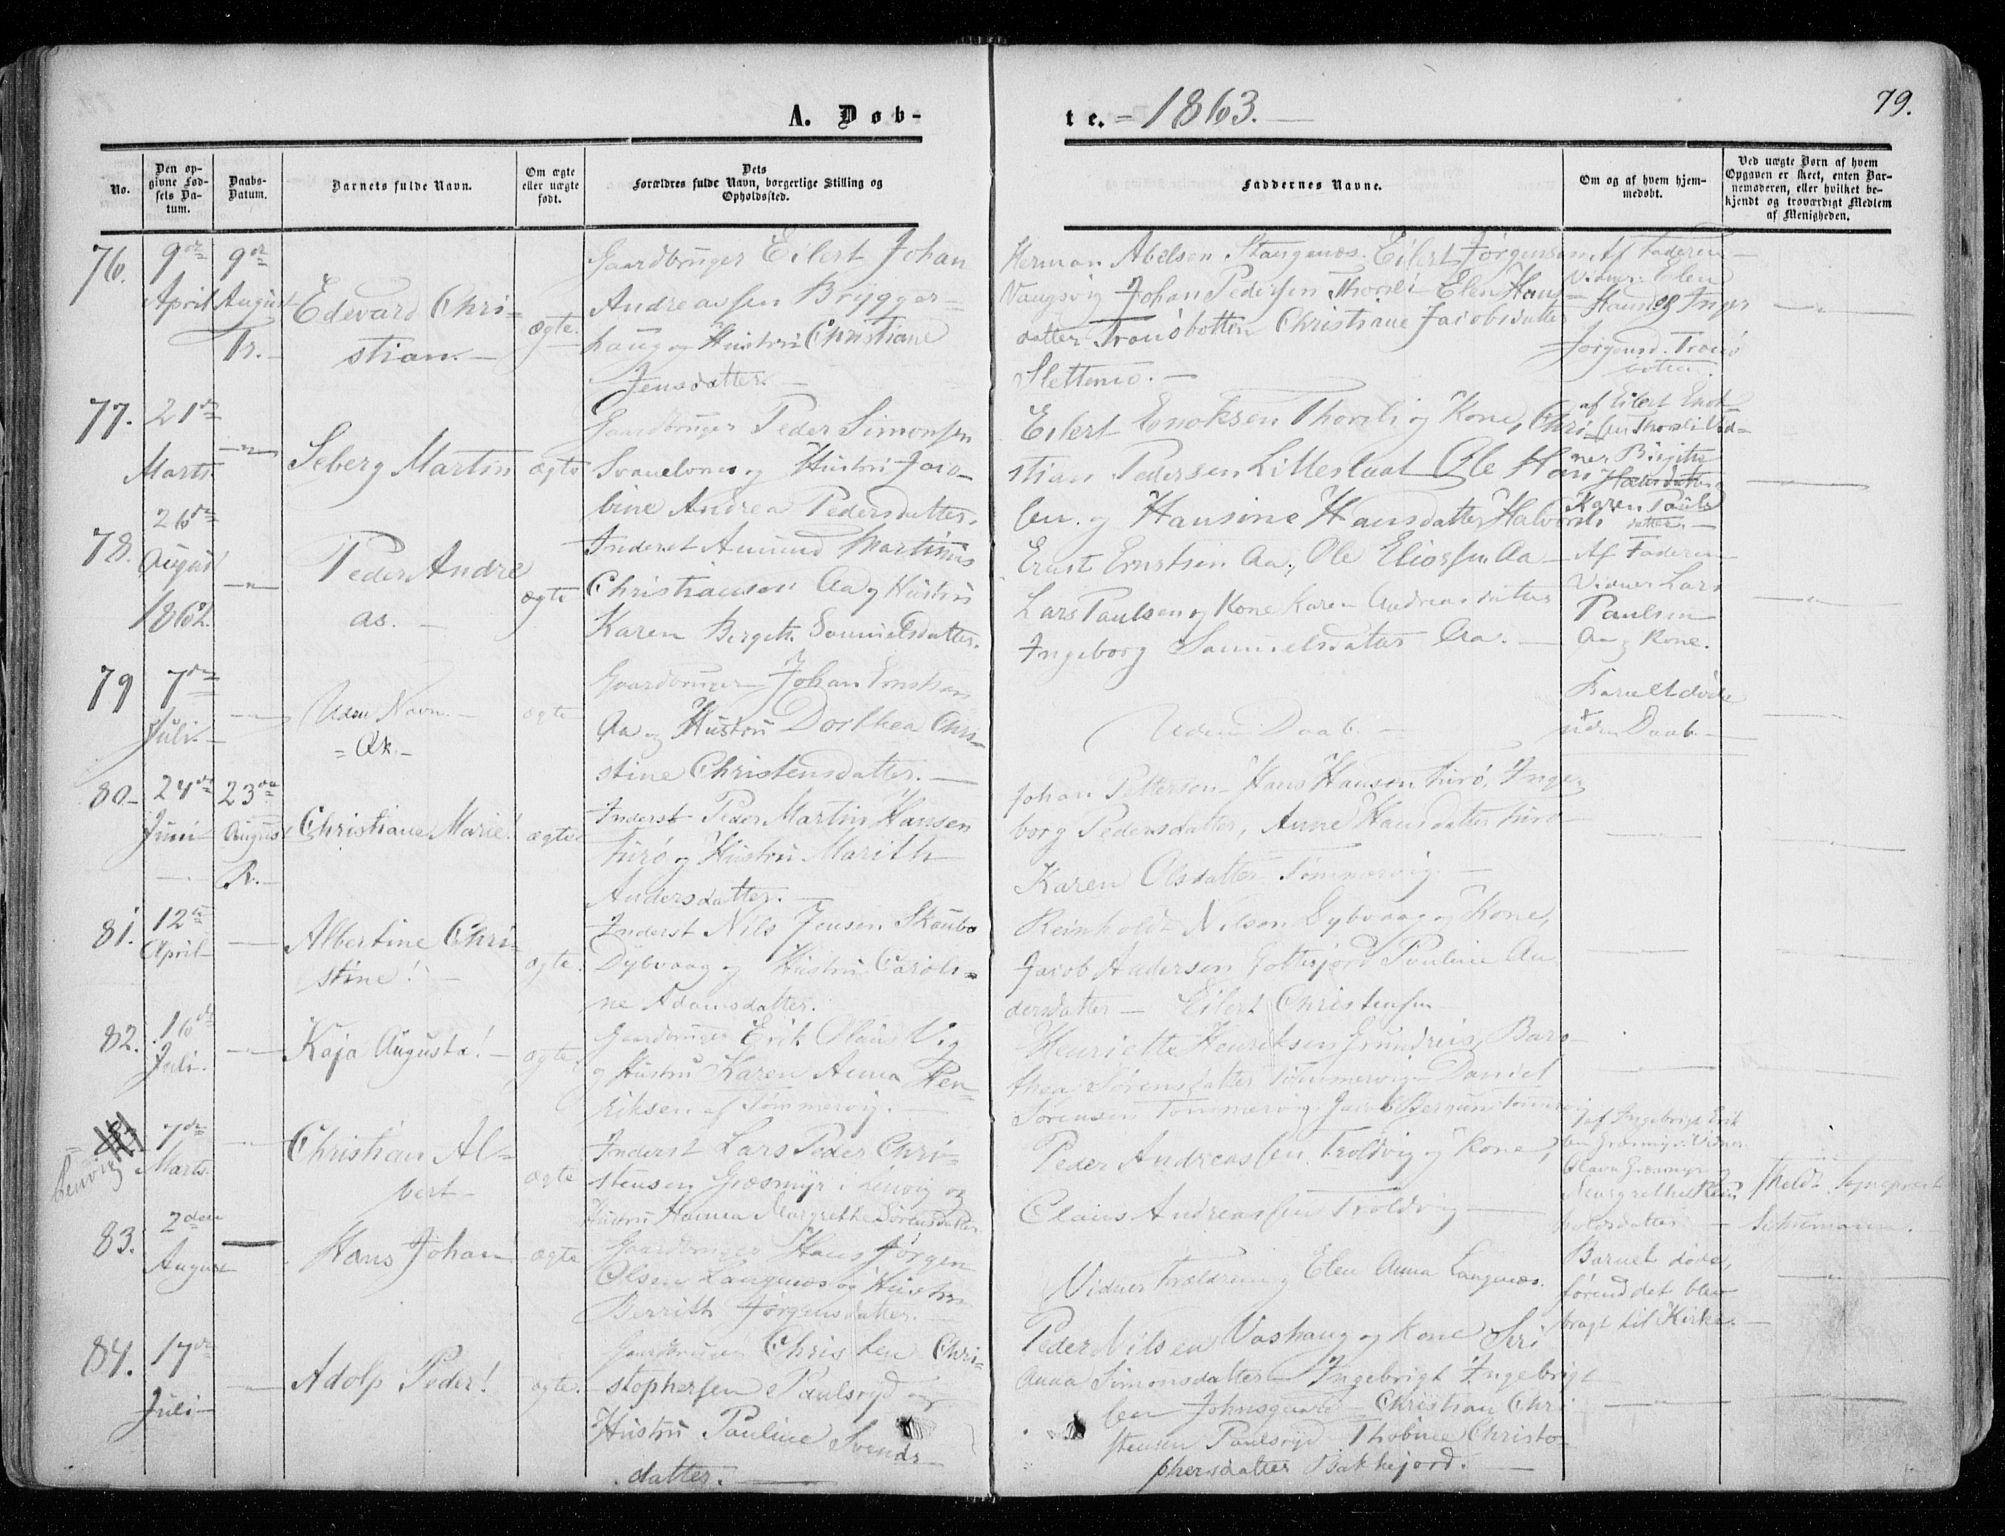 A. Døb-
te. = 1863. —
79.
No.
Den op-
givne Fød-
sels Da-
tum.
Daabs-
Datum.
Barnets fulde Navn.
Om ægte
eller uægte
født.
Dets
Forældres fulde Navn, borgerlige Stilling og
Opholdssted.
Faddernes Navne.
Om og af hvem hjem-
medøbt.
Ved uægte Børn af hvem
Opgaven er skeet, enten Bar-
nemoderen, eller hvilket be-
kjendt og troværdigt Medlem
af Menigheden.
76.
9de
April
9de
August
Tr.
Edevard Chri-
stian. —
ægte
Gaardbruger Eilert Johan
Andreassen Brygger-
haug og Hustru Christiane
Jensdatter. —
Herman Abelsen Stangenæs. Eilert Jørgensen
Vangsvig Johan Pedersen Thorsli Elen Hans-
datter Tranøbotten Christiane Jacobsdatter
Slettenæs. —
Af Faderen —
Vidner: Elen
Hansd. og Inger
Jørgensd. Tranø
botten.
77.
21de
Marts.
Seberg Martin
ægte
Gaardbruger Peder Simonsen
og Hustru Jaco-
bine Andrea Pedersdatter.
Eilert Enoksen Thorsli og Kone, Chri-
stian Pedersen Lillesland Ole Han
sen og Hansine Hansdatter
af Eilert Enok-
sen Thorsli Vid-
ner Birgithe
Hansdatter
Karen Pauls
datter —
78.
26de
August
1862.
Peder Andre
as. —
ægte
Inderst Amund Martinus
Christiansen Aa og Hustru
Karen Birgith. Samuelsdatter.
Ernst Ernstsen Aa, Ole Eliassen Aa —
Lars Paulsen og Kone Karen Andreasdatter
Ingeborg Samuelsdatter Aa. —
Af Faderen
Vidner Lars
Paulsen
Aa og Kone.
79
7de
Juli.
Uden Navn. —
= Qk. —
ægte
Gaardbruger Johan Ernstsen
Aa og Hustru Dorthea Chri-
stine Christensdatter. —
Uden Daab. —
Barnet døde
uden Daab. —
80 —
24de
Juni
23de
August
R. —
Christiane Marie!
ægte
Inderst Peder Martin Hansen
og Hustru Marith
Andersdatter. —
Johan Pettersen Hans Hansen Inge-
borg Pedersdatter, Anne Hansdatter
Karen Olsdatter Tømmervig —
81.
12te
April
Albertine Chri-
stine! —
ægte.
Inderst Nils Jensen Skaubo
Dybvaag og Hustru Caroli-
ne Adamsdatter.
Reinholdt Nilsen Dybvaag og Kone,
Jacob Andersen Gottesjord Pauline An
dersdatter — Eilert Christensen
82.
16de
Juli.
Kaja Augusta! —
ægte.
Gaardbruger Erik Olaus Vig
og Hustru Karen Anna Hen-
riksen af Tømmervig. —
Henriette Henriksen Grundreis, Bar-
thea Sørensdatter Tømmervig Daniel
Sørensen Tømmervig
7de
Marts.
Christian Al-
bert —
ægte
Inderst Lars Peder Chri-
stensen Græsmyr i Lenvig og
Hustru Hanna Margrethe Sørensdatter
Peder Andreassen Troldvig og Kone,
Claus Andreassen Troldvig —
83.
2den
August
Hans Johan
ægte
Gaardbruger Hans Jørgen
Olsen Langnæs og Hustru
Berrith Jørgensdatter. —
Vidner Forældrene og Elen Anna Langnæs.
Barnet døde,
førend det blev
bragt til Kirke. —
84.
17de
Juli —
Adolp Peder!
ægte.
Gaardbruger Christen Chri-
stophersen Paulsryd og
Hustru Pauline Svends-
datter. —
Peder Nilsen Vashaug og Kone Siri
Anna Simonsdatter Ingebrigt Ingebrigt
sen Johnsgaard — Christian Chri
stensen Paulsryd Thobine Christo-
phersdatter Bakkejord. —